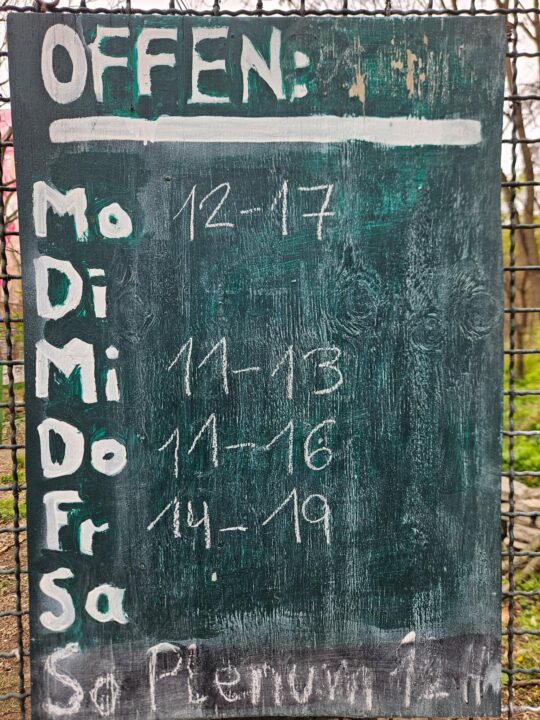 OFFEN:
Mo 12-17
Di
Mi 11-13
Do 11-16
Fr 14-19
Sa
So Plenum